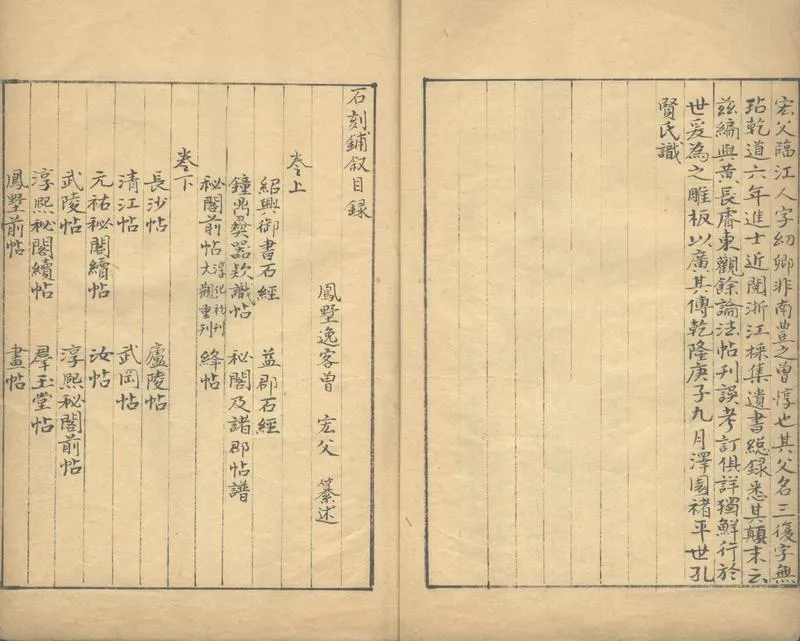 宏父臨江人字幼卿非南豊之曾惇也其父名三復字無
玷乾道六年進士近閱浙江採集遺書總録悉其顛末云
茲編與黄長睿東觀餘論法帖刊誤考訂俱詳獨鮮行於
世爰為之雕板以廣其傳乾隆庚子九月澤園褚平世孔
賢氏識
石刻鋪叙目録
鳳墅逸客曾 宏父 纂述
卷上
紹興御書石經 益郡石經
鐘鼎彝器款識帖 秘閣及諸郡帖譜
秘閣前帖淳化初刊大觀重刊 絳帖
卷下
長沙帖 廬陵帖
清江帖 武岡帖
元祐秘閣續帖 汝帖
武陵帖 淳熙秘閣前帖
淳熙秘閣續帖 羣玉堂帖
鳳墅前帖 畫帖